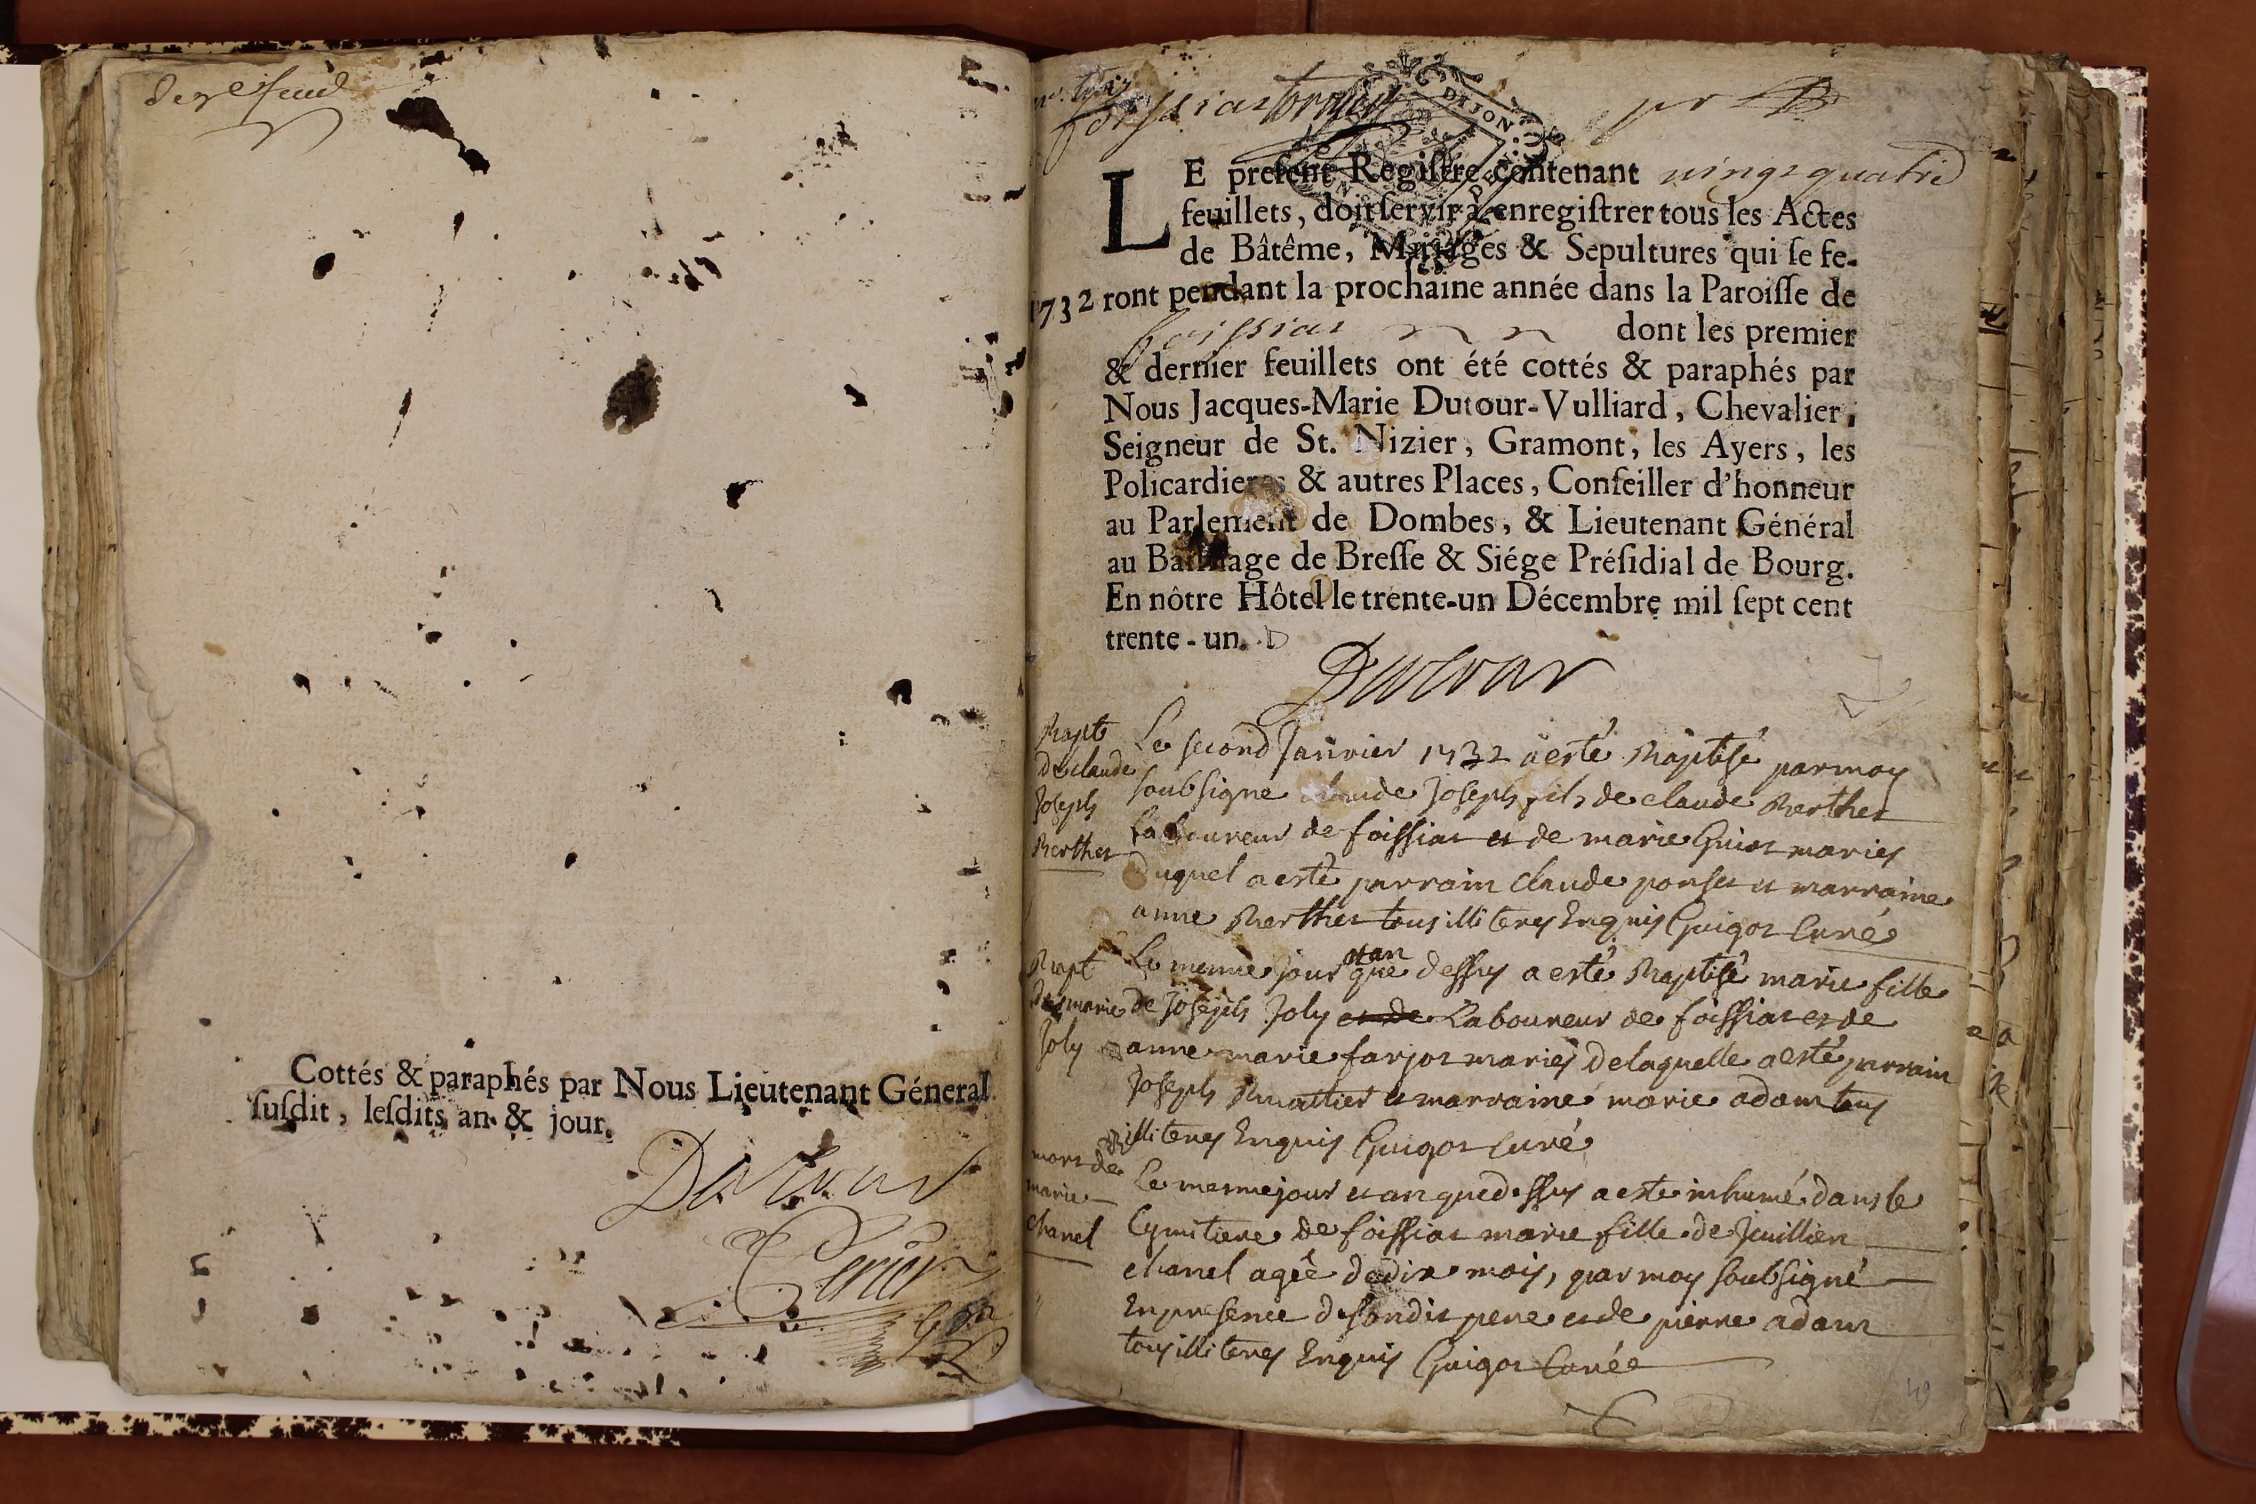 Cottés & paraphés par Nous Lieutenant Géneral
ſuſdit, leſdits an & jour.
Dutour
Perier
DIJON
LE preſent Regiſtre contenant vingt quatre
feuillets, doit ſervir à enregiſtrer tous les Actes
de Bâtême, Mariages & Sepultures qui ſe fe-
1732 ront pendant la prochaine année dans la Paroiſſe de
foissiat dont les premier
& dernier feuillets ont été cottés & paraphés par
Nous Jacques-Marie Dutour-Vulliard, Chevalier,
Seigneur de St. Nizier, Gramont, les Ayers, les
Policardieres & autres Places, Conſeiller d'honneur
au Parlement de Dombes, & Lieutenant Général
au Bailliage de Breſſe & Siége Préſidial de Bourg.
En nôtre Hôtel le trente-un Décembre mil ſept cent
trente-un.
Dutour
Bapt
de claude
Joseph
Berthet
Le second Janvier 1732 a esté Baptisé par moy
soubsigne claude Joseph fils de claude Berthet
Laboureur de foissiat et de marie Guiot mariés
duquel a esté parrain claude ponset et marraine
anne Berthet tous illiterés Enquis Guigot Curé
Bapt
de marie
Joly
Le mesme jour et an que dessus a esté Baptisé marie fille
de Joseph Joly et de Laboureur de foissiat et de
anne marie farjot mariés de laquelle a esté parrain
Joseph et marraine marie adam tous
illiterés Enquis Guigot curé
mort de
marie
chanel
Le mesme jour et an que dessus a este inhumé dans le
Cymitiere de foissiat marie fille de Juillien
chanel agéé de dix mois, par moy soubsigné
En presence de sondit pere et de pierre adam
tous illiterés Enquis Guigot Curé
49